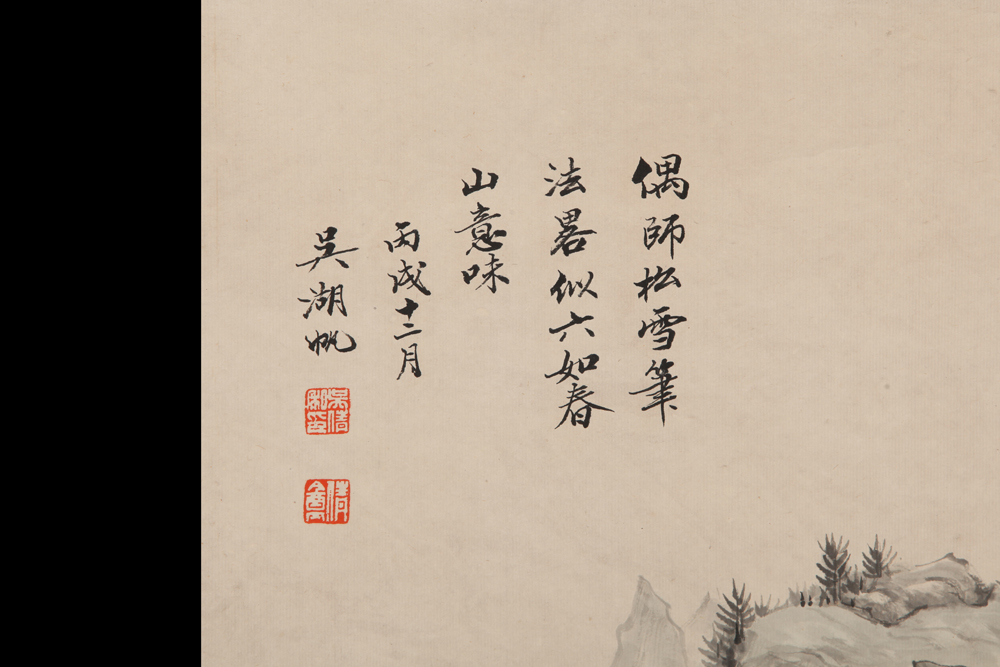 偶師松雪筆
法畧似六如春
山意味
丙戌十二月
吳湖帆
倩盦